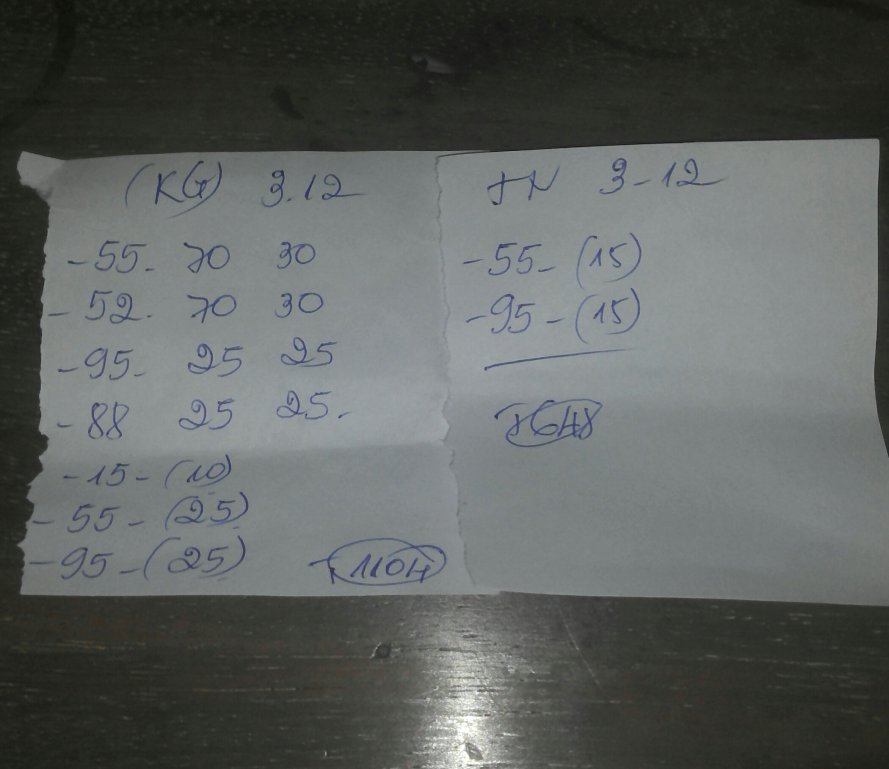 (KG) 3.12
-55. 70 30
-52. 70 30
-95- 25 25
-88 25 25.
-15-(10)
-55-(25)
-95-(25)
T 1104
TN 3-12
-55-(15)
-95-(15)
T 648